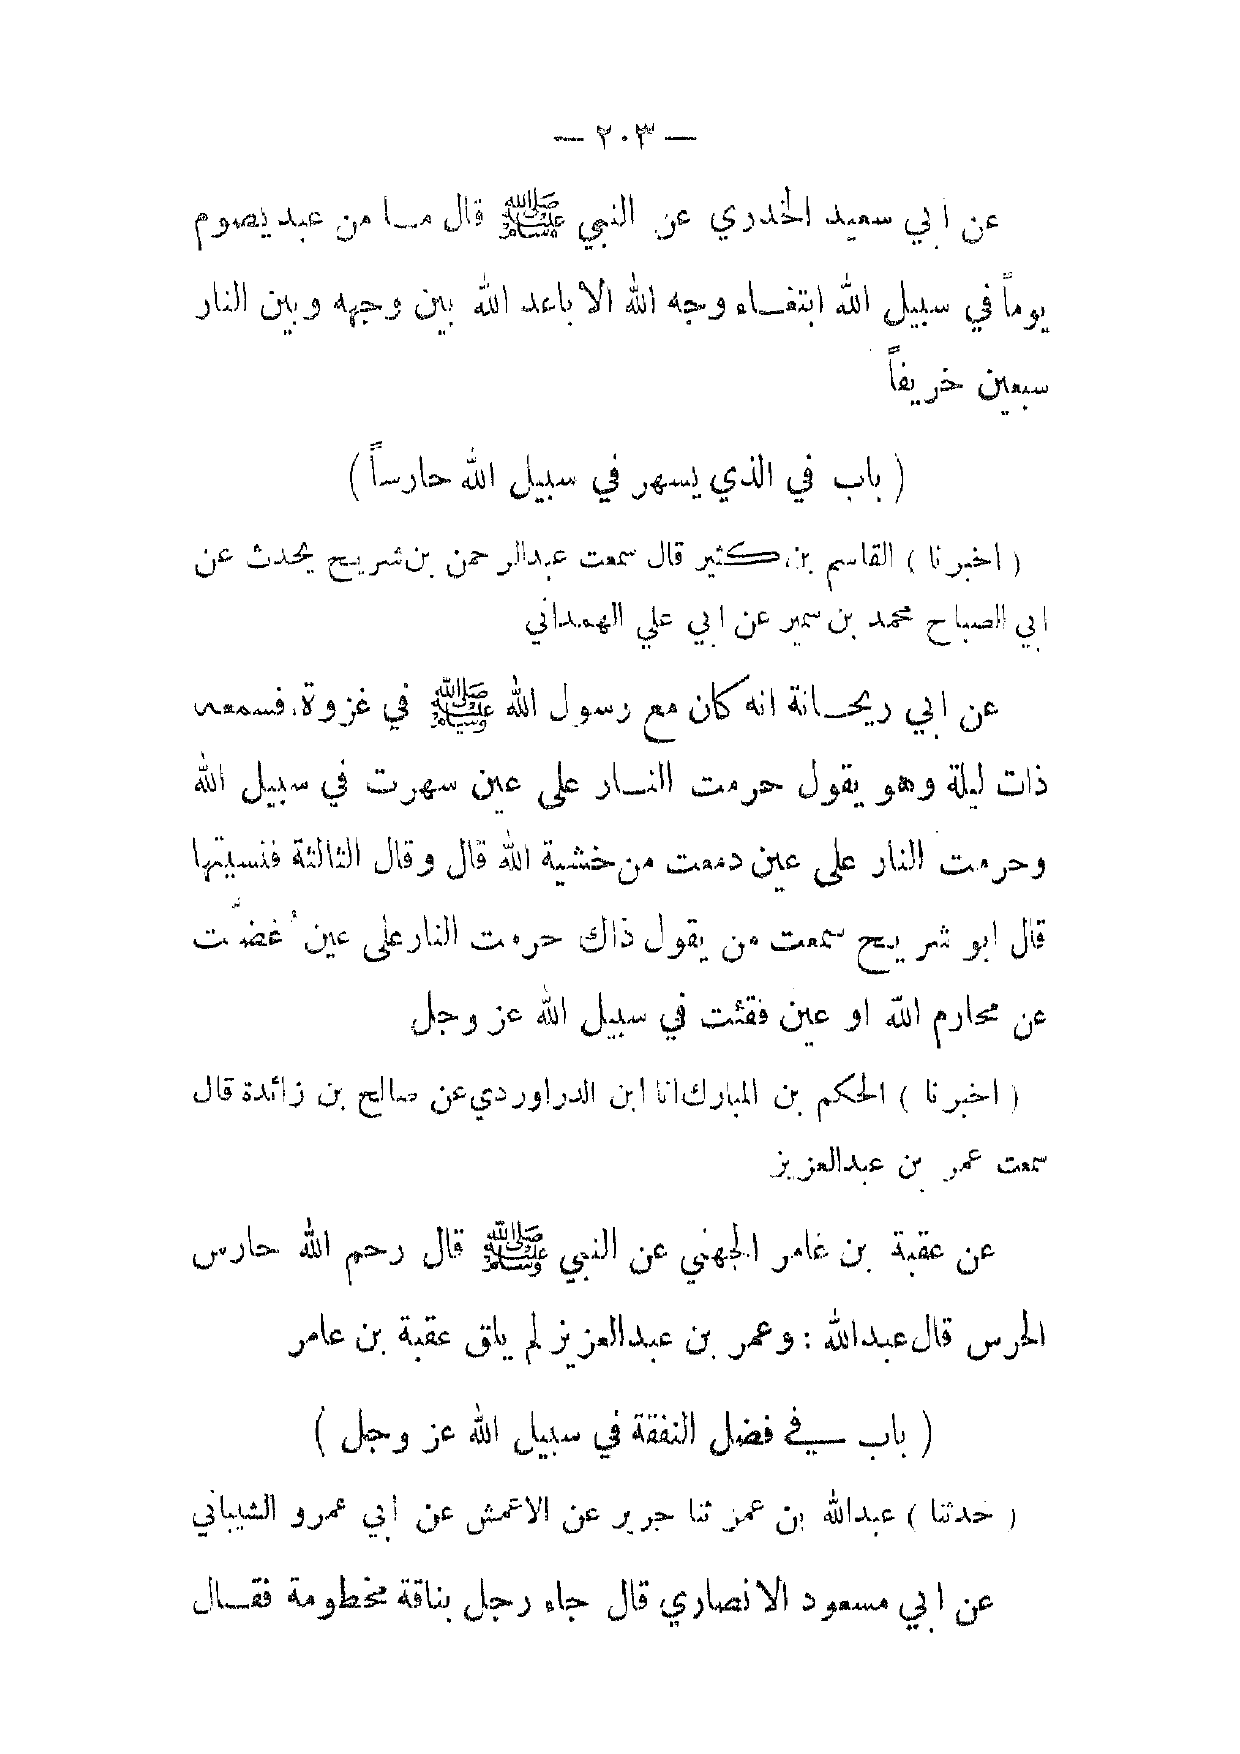 — ٢٠٣ —
عن ابي سعيد الخدري عن النبي ﷺ قال ما من عبد يصوم
يوماً في سبيل الله ابتفاء وجه الله الا باعد الله بين وجهه وبين النار
سبعين خريفاً
( باب في الذي يسهر في سبيل الله حارساً )
( اخبرنا ) القاسم بن كثير قال سمعت عبدالرحمن بن شريح يحدث عن
ابي الصباح محمد بن سمير عن ابي علي الهمداني
عن ابي ريحانة انه كان مع رسول الله ﷺ في غزوة فسمعه
ذات ليلة وهو يقول حرمت النار على عين سهرت في سبيل الله
وحرمت النار على عين دمعت من خشية الله قال وقال الثالثة فنسيتها
قال ابو شريح سمعت من يقول ذاك حرمت النار على عين غضّت
عن محارم الله او عين فقئت في سبيل الله عز وجل
( اخبرنا ) الحكم بن المبارك انا ابن الدراوردي عن صالح بن زائدة قال
سمعت عمر بن عبدالعزيز
عن عقبة بن غامر الجهني عن النبي ﷺ قال رحم الله حارس
الحرس قال عبدالله : وعمر بن عبدالعزيز لم ياق عقبة بن عامر
( باب في فضل النفقة في سبيل الله عز وجل )
( حدثنا ) عبدالله بن عمر ثنا جرير عن الاعمش عن أبي عمرو الشيباني
عن ابي مسعود الانصاري قال جاء رجل بناقة مخطومة فقال